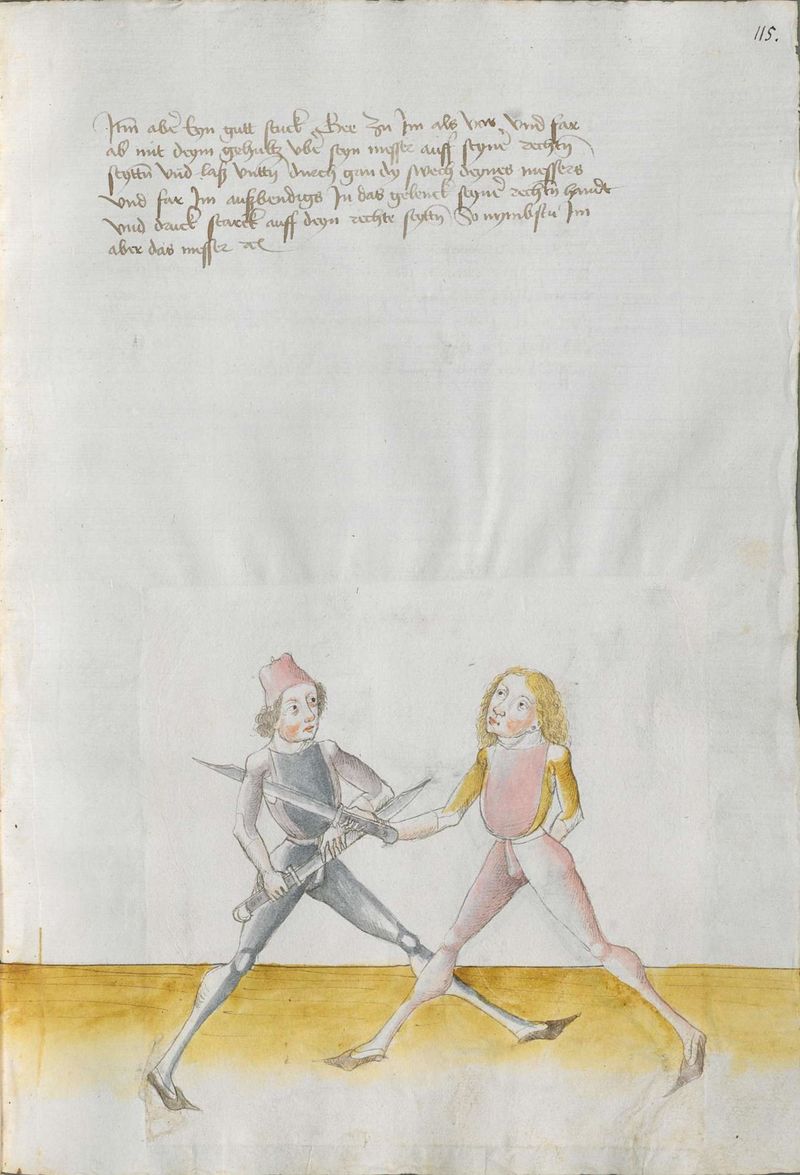 115.
Itm̄ aber Eyn gutt stuck Gee zu Im als vor, vnd far
ab mit deym gehultz vber seyn messer auff seyner rechtn̄
seyttn̄ vnd laß vnttn̄ durch gan dy swech deynes messers
vnd far Im außbendigs In das gelenck seyner rechtn̄ handt
vnd druck starck auff deyn rechte seyttn̄ So nymbstu Im
aber das messer